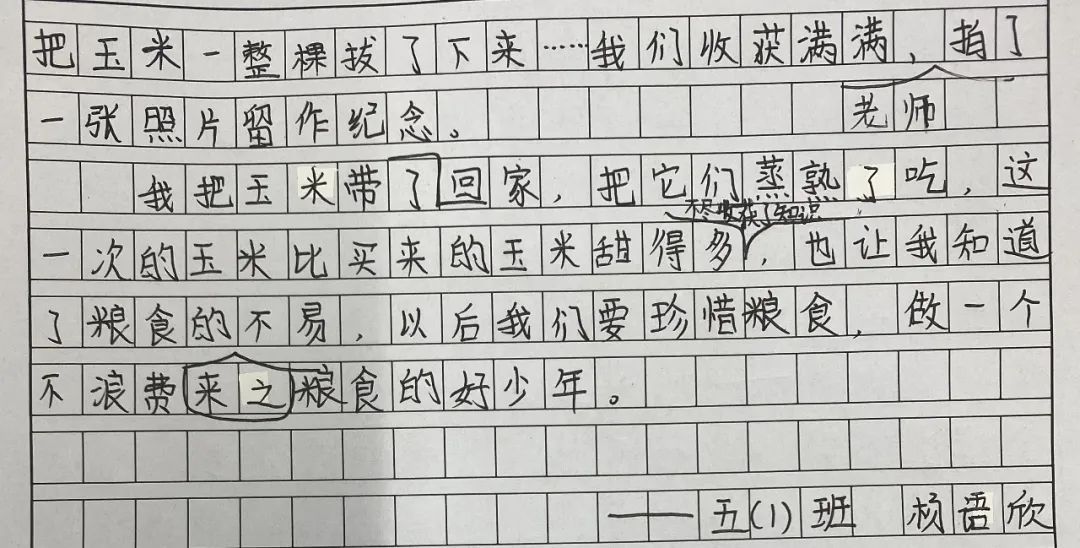 把玉米一整棵拔了下来……我们收获满满，拍了
老师
一张照片留作纪念。
我把玉米带了回家，把它们蒸熟了吃，这
收获了知识
一次的玉米比买来的玉米甜得多，也让我知道
了粮食的不易，以后我们要珍惜粮食，做一个
不浪费来之粮食的好少年。
——五(1)班 杨语欣